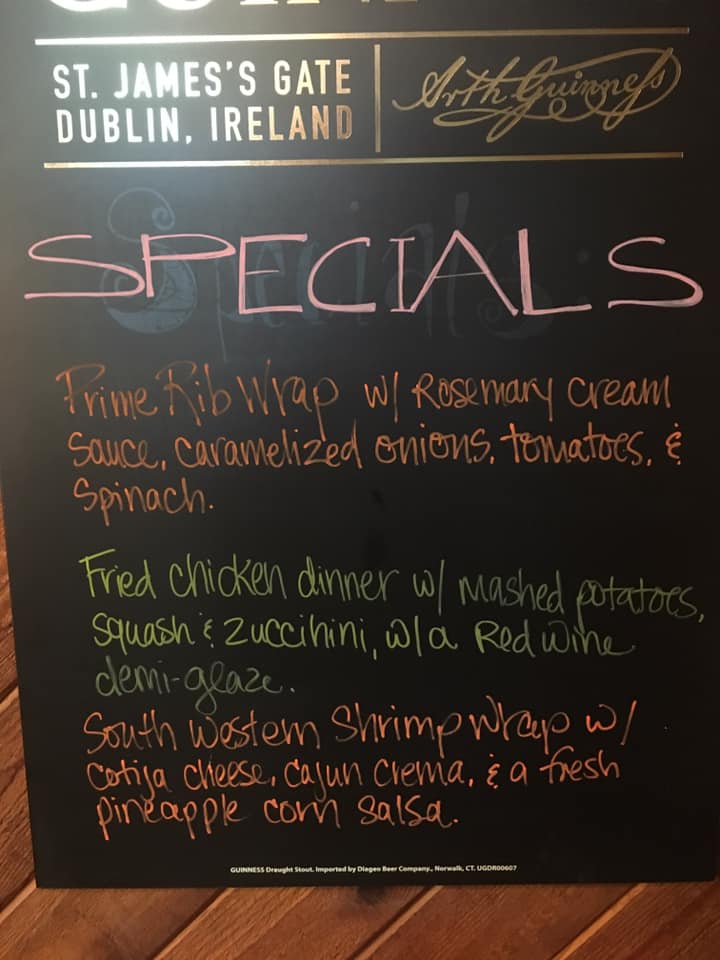 ST. JAMES'S GATE
DUBLIN, IRELAND
Arth Guinness
SPECIALS
Specials:
Prime Rib Wrap w/ Rosemary cream
Sauce, caramelized onions, tomatoes, &
Spinach.
Fried chicken dinner w/ mashed potatoes,
squash & zuccihini, w/a Red wine
demi-glaze.
South western Shrimp wrap w/
Cotija cheese, cajun crema, & a fresh
pineapple corn salsa.
GUINNESS Draught Stout. Imported by Diageo Beer Company., Norwalk, CT. UGDR00607